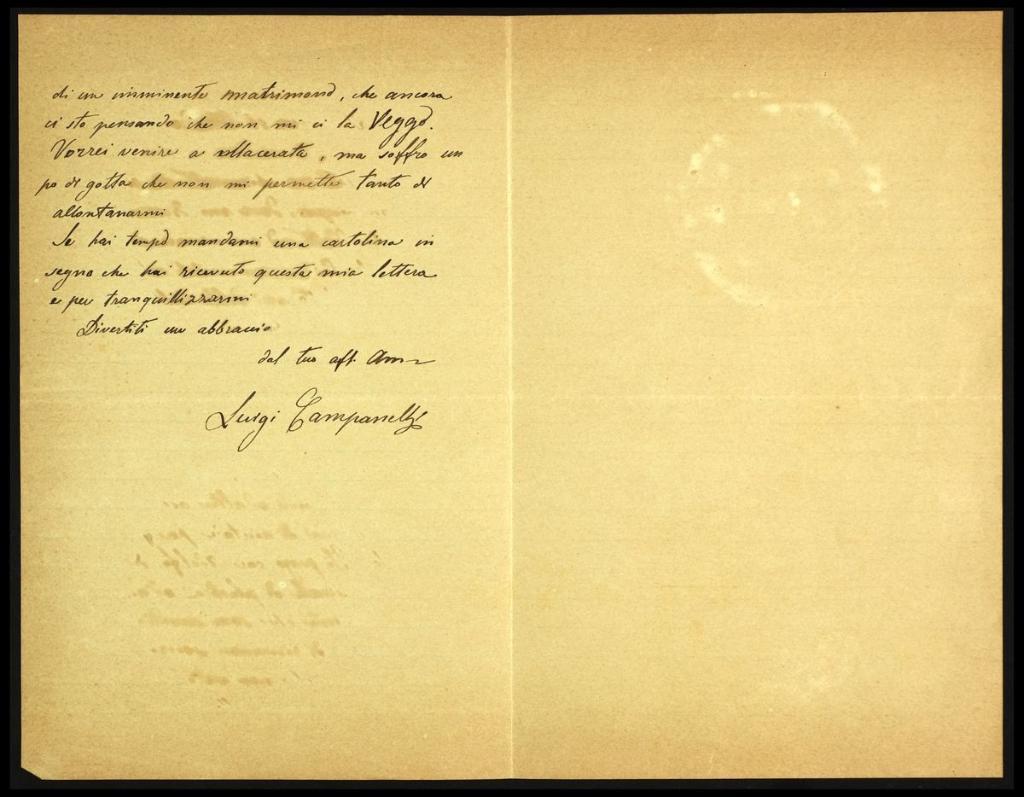 di un imminente matrimonio, che ancora
ci sto pensando che non mi ci la Veggo.
Vorrei venire a Macerata, ma soffro un
po di gotta che non mi permette tanto di
allontanarmi
Se hai tempo mandami una cartolina in
segno che hai ricevuto questa mia lettera
e per tranquillizzarmi
Divertiti un abbraccio
dal tuo aff. Am
Luigi Campanelli